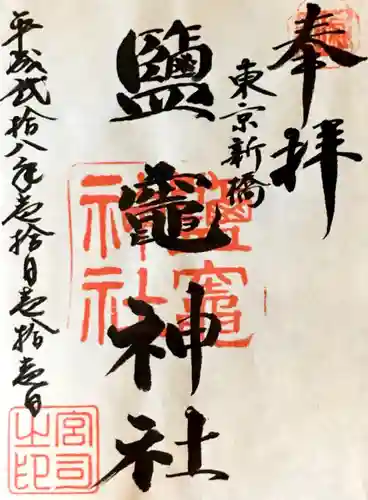 奉拝
東京新橋
鹽竈神社
平成弐拾八年壱拾月壱拾壱日
鹽竈神社
宮司之印